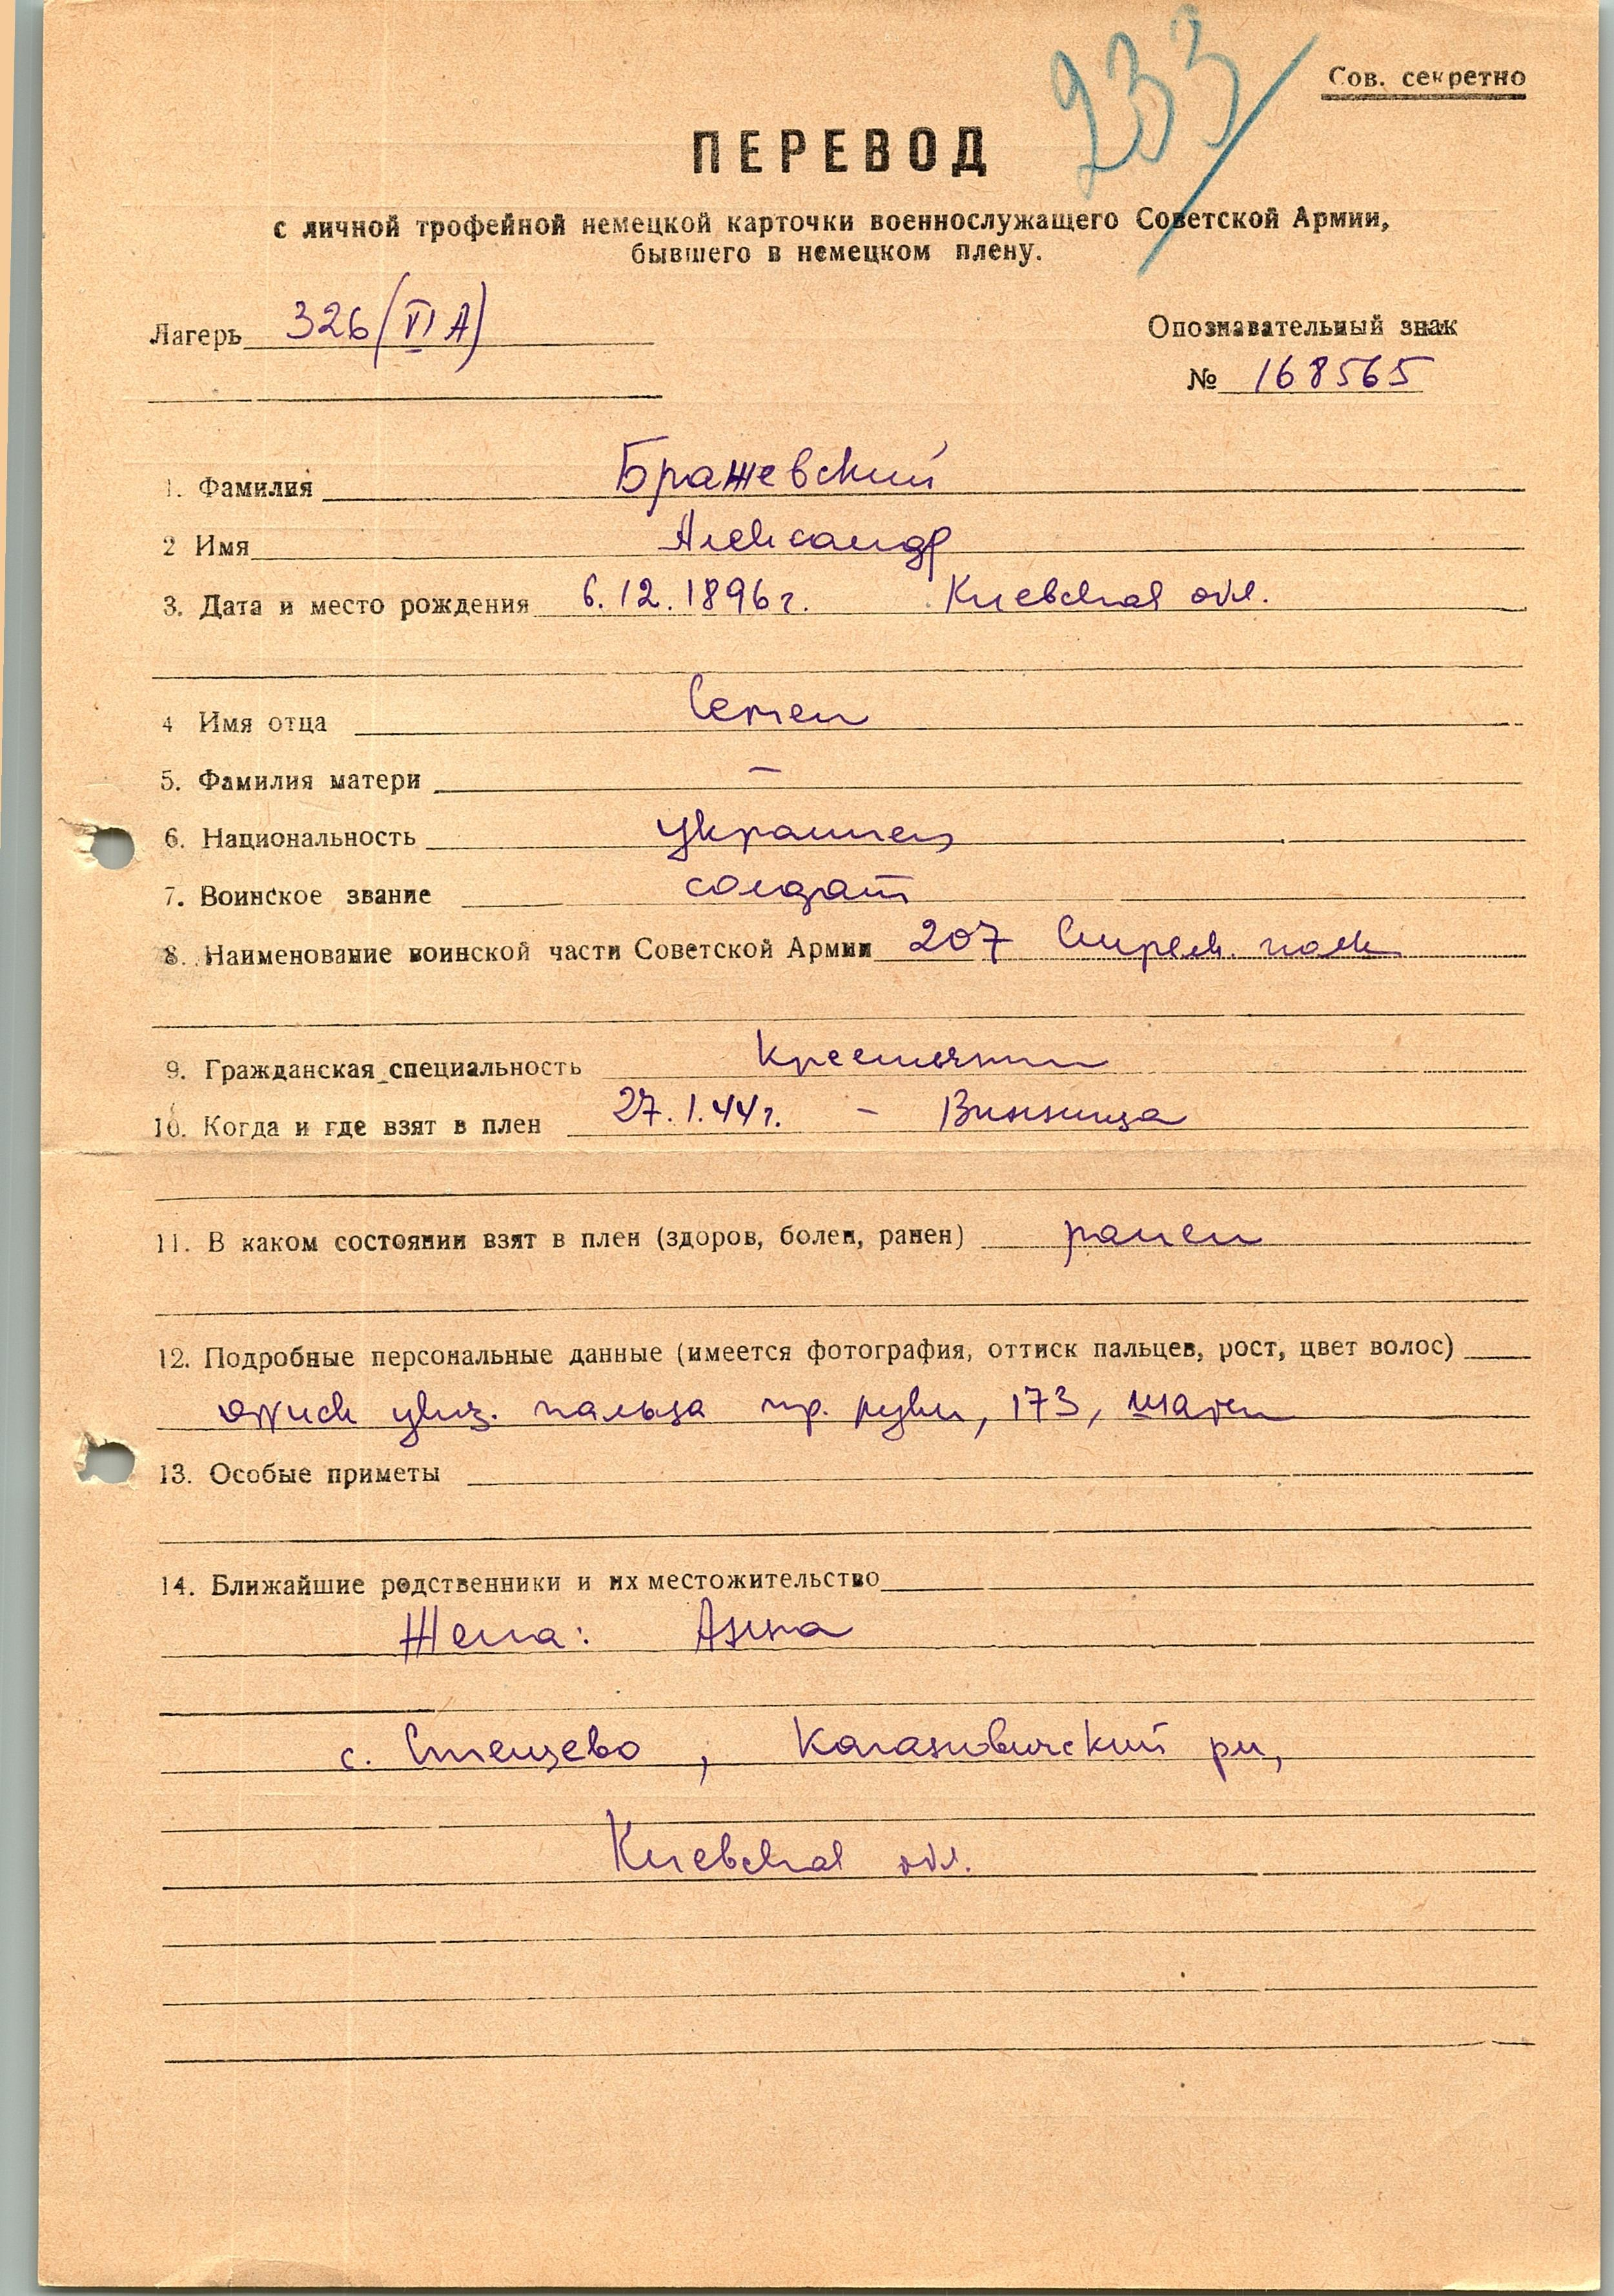 233
Сов. секретно
ПЕРЕВОД
с личной трофейной немецкой карточки военнослужащего Советской Армии,
бывшего в немецком плену.
Лагерь 326 (VI А)
Опознавательный знак
№ 168565
1. Фамилия Бражевский
2 Имя Александр
3. Дата и место рождения 6.12.1896 г. Киевская обл.
4 Имя отца Семен
5. Фамилия матери –
6. Национальность украинец
7. Воинское звание солдат
8. Наименование воинской части Советской Армии 207 Стрелк. полк
9. Гражданская специальность крестьянин
10. Когда и где взят в плен 27.1.44 г. – Винница
11. В каком состоянии взят в плен (здоров, болен, ранен) ранен
12. Подробные персональные данные (имеется фотография, оттиск пальцев, рост, цвет волос)
оттиск указ. пальца пр. руки, 173, шатен
13. Особые приметы
14. Ближайшие родственники и их местожительство
Жена: Анна
с. Стецево, Кагановический рн,
Киевская обл.